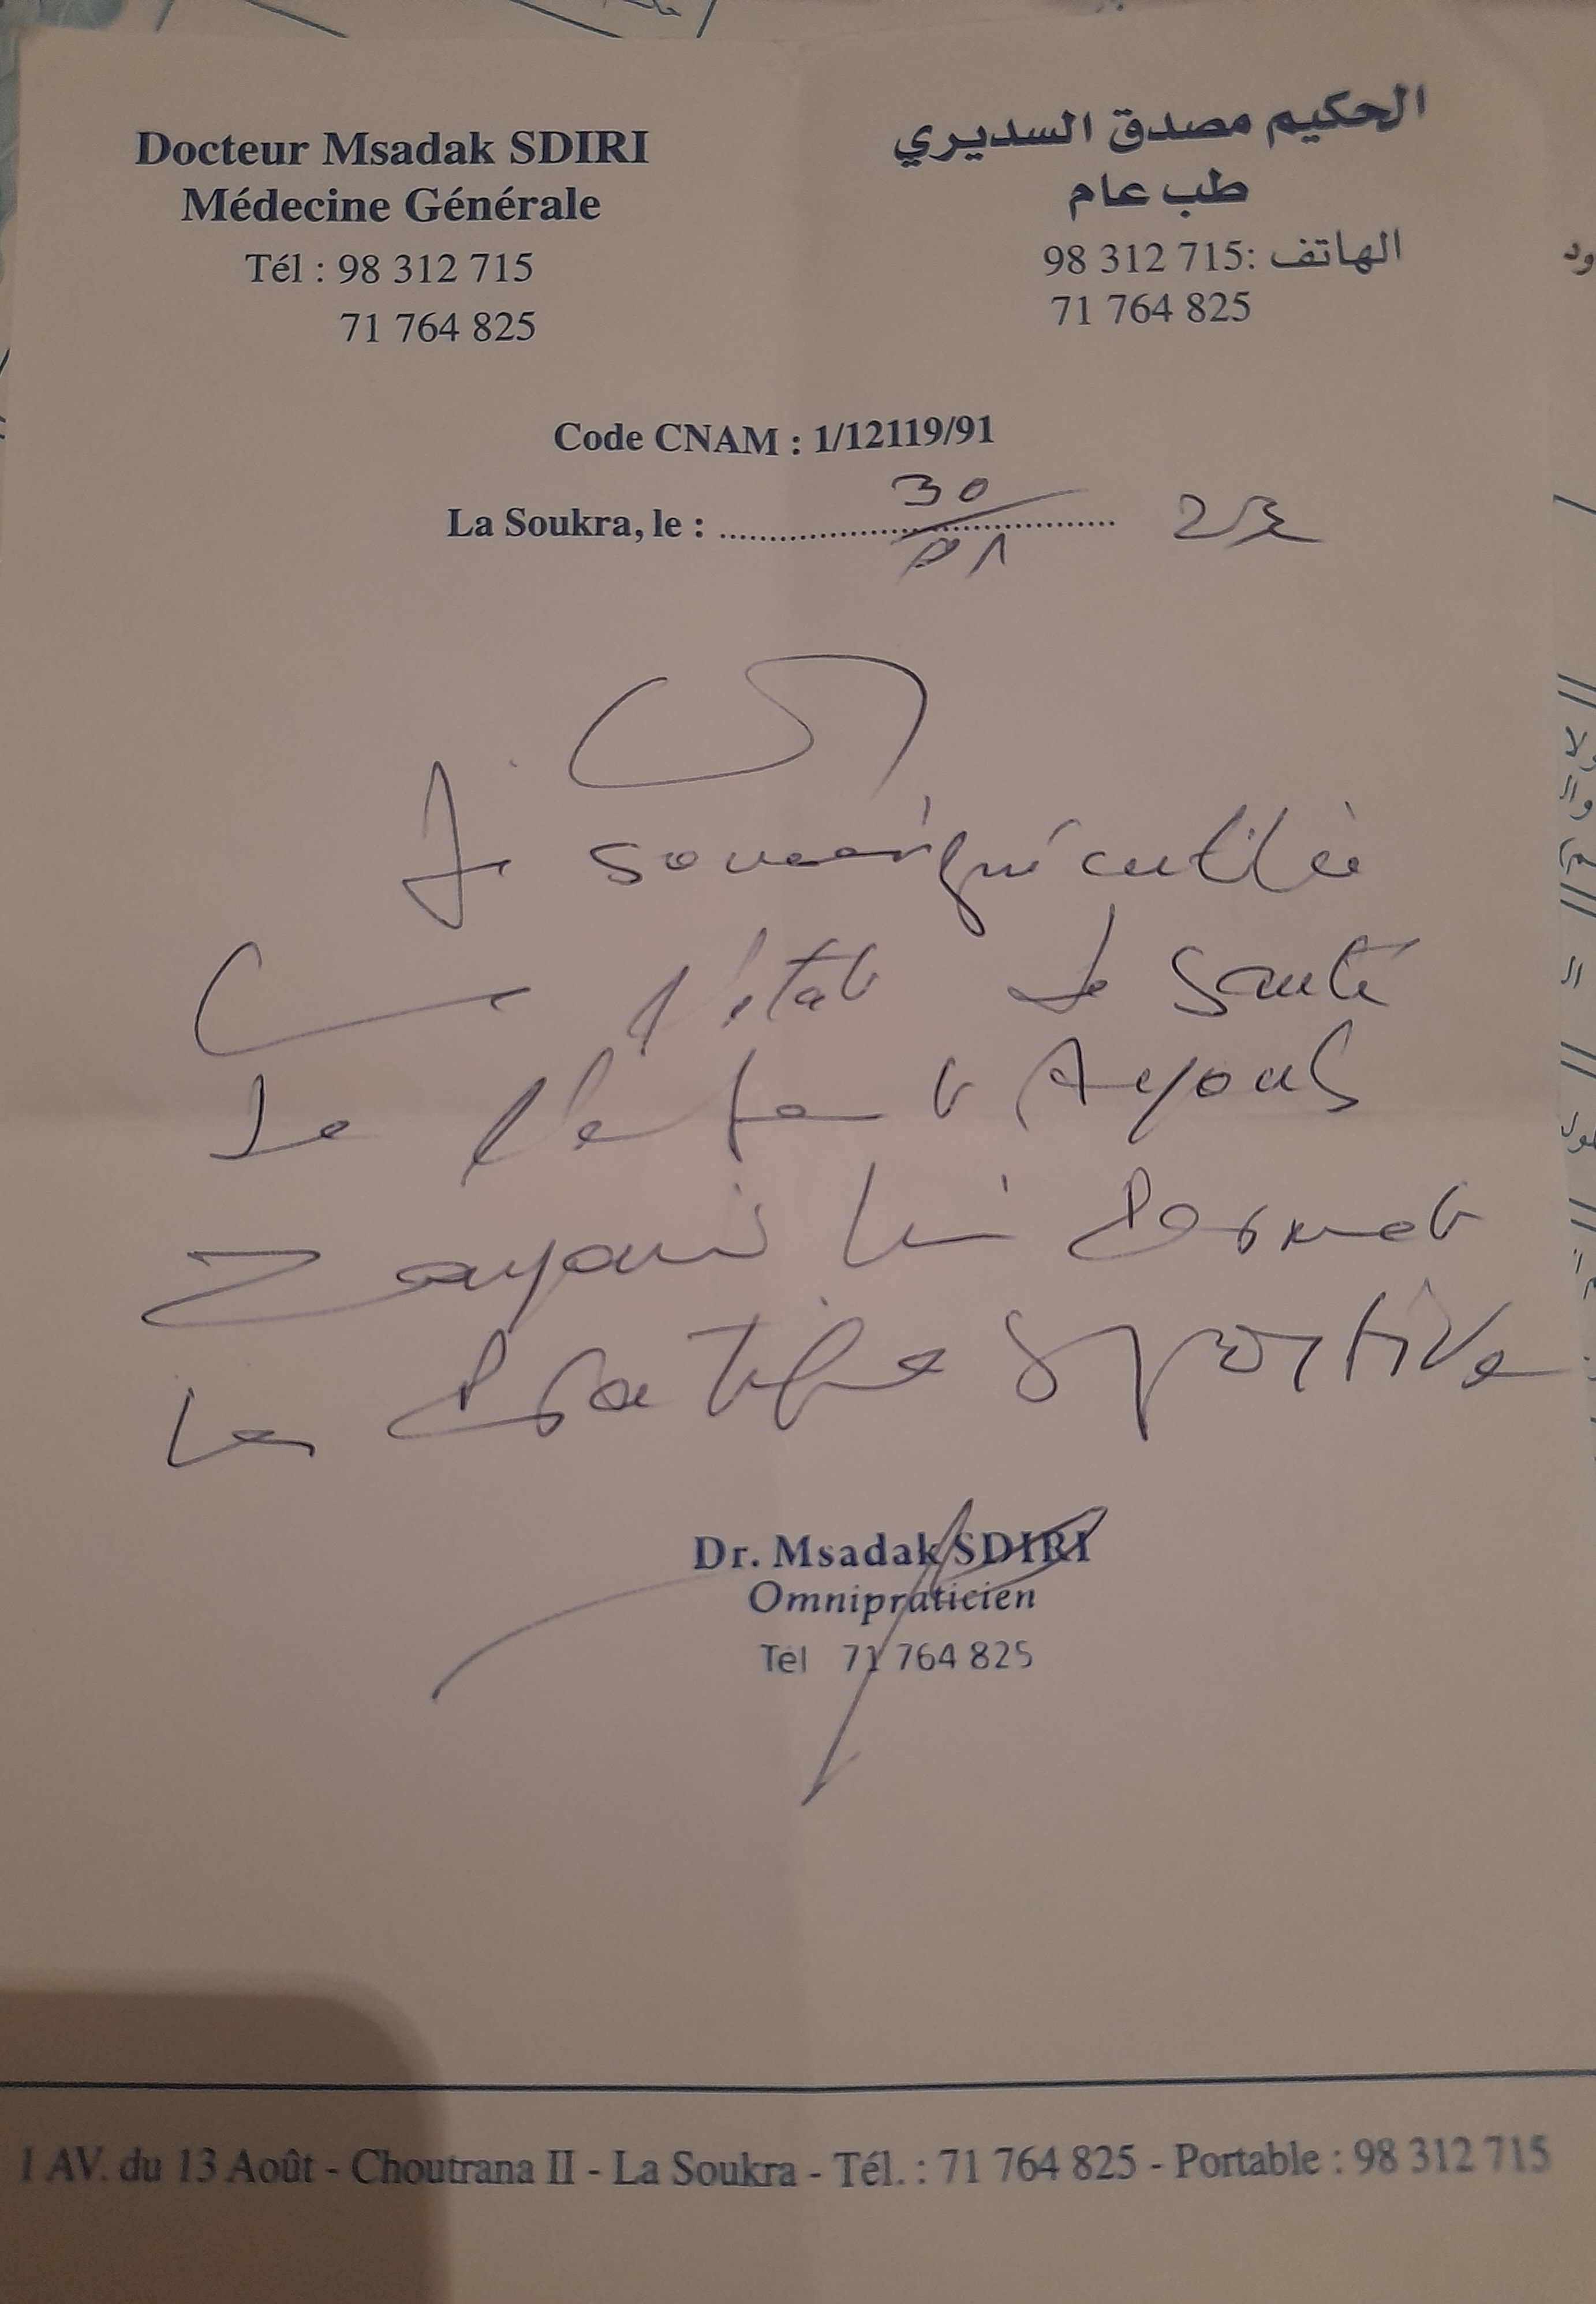 Docteur Msadak SDIRI
Médecine Générale
Tél : 98 312 715
71 764 825
الحكيم مصدق السديري
طب عام
الهاتف :98 312 715
71 764 825
Code CNAM : 1/12119/91
La Soukra, le : 30/01 23
Je soussigné certifie
que l'état de santé
de l'enfant Ayoub
Zayani lui permet
la pratique sportive
Dr. Msadak SDIRI
Omnipraticien
Tel 71 764 825
1 AV. du 13 Août - Choutrana II - La Soukra - Tél. : 71 764 825 - Portable : 98 312 715